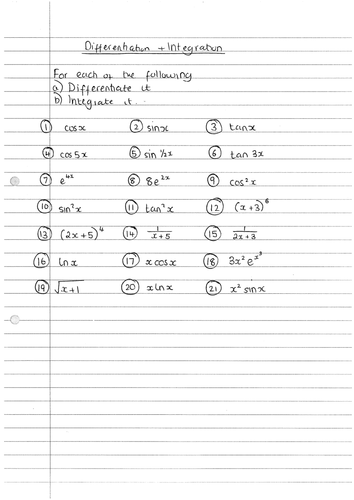 Differentiation + Integration
For each of the following
a) Differentiate it
b) Integrate it.
① cosx ② sinx ③ tanx
④ cos5x ⑤ sin ½x ⑥ tan 3x
⑦ e⁴ˣ ⑧ 8e²ˣ ⑨ cos²x
⑩ sin²x ⑪ tan²x ⑫ (x+3)⁶
⑬ (2x+5)⁴ ⑭ 1/(x+5) ⑮ 1/(2x+3)
⑯ lnx ⑰ xcosx ⑱ 3x²e^x³
⑲ √(x+1) ⑳ xlnx ㉑ x² sinx